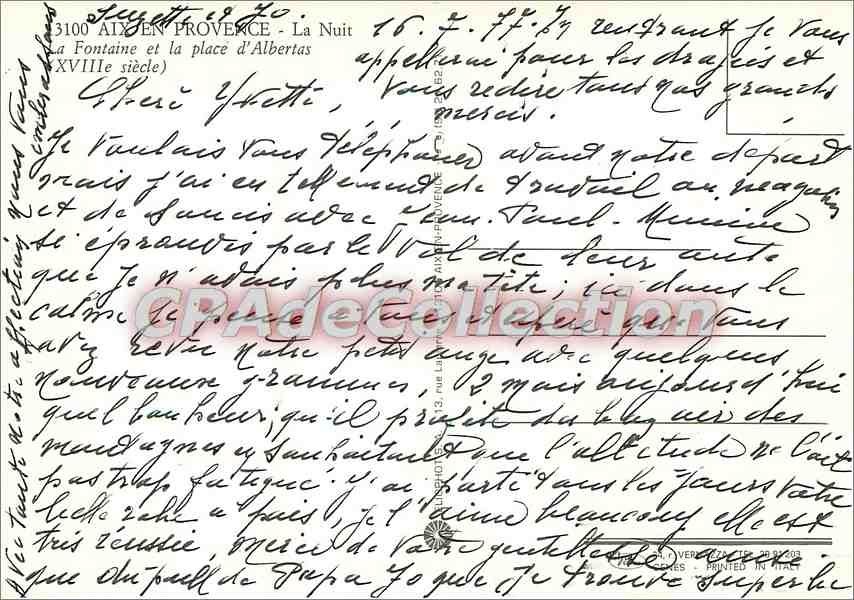 13100 AIX-EN-PROVENCE - La Nuit
La Fontaine et la place d'Albertas
(XVIIIe siècle)
16.7.77. En rentrant je vous
appellerai pour les dragées et
vous redire tous nos grands
mercis.
Chère Yvette,
Je voulais vous téléphoner avant notre départ
mais j'ai eu tellement de travail au magasin
et de soucis avec Jean-Paul-
si éprouvés par le vol de leur auto
que je n'avais plus ma tête; ici dans le
calme je pense à tous et espère que vous
avez revu notre petit ange avec quelques
nouveaux grammes, 2 mois aujourd'hui
quel bonheur, qu'il profite du bon air des
montagnes en souhaitant que l'altitude ne l'ait
pas trop fatigué. J'ai porté tous les jours votre
belle robe à pois, je l'aime beaucoup elle est
très réussie, merci de votre gentillesse
que du pull de Papa Jo que je trouve superbe
Avec toute notre affection nous vous
embrassons
Suzette et Jo.
CPAdeCollection
24, r. VERNAZZA - TEL. 20.91.203
GENES - PRINTED IN ITALY